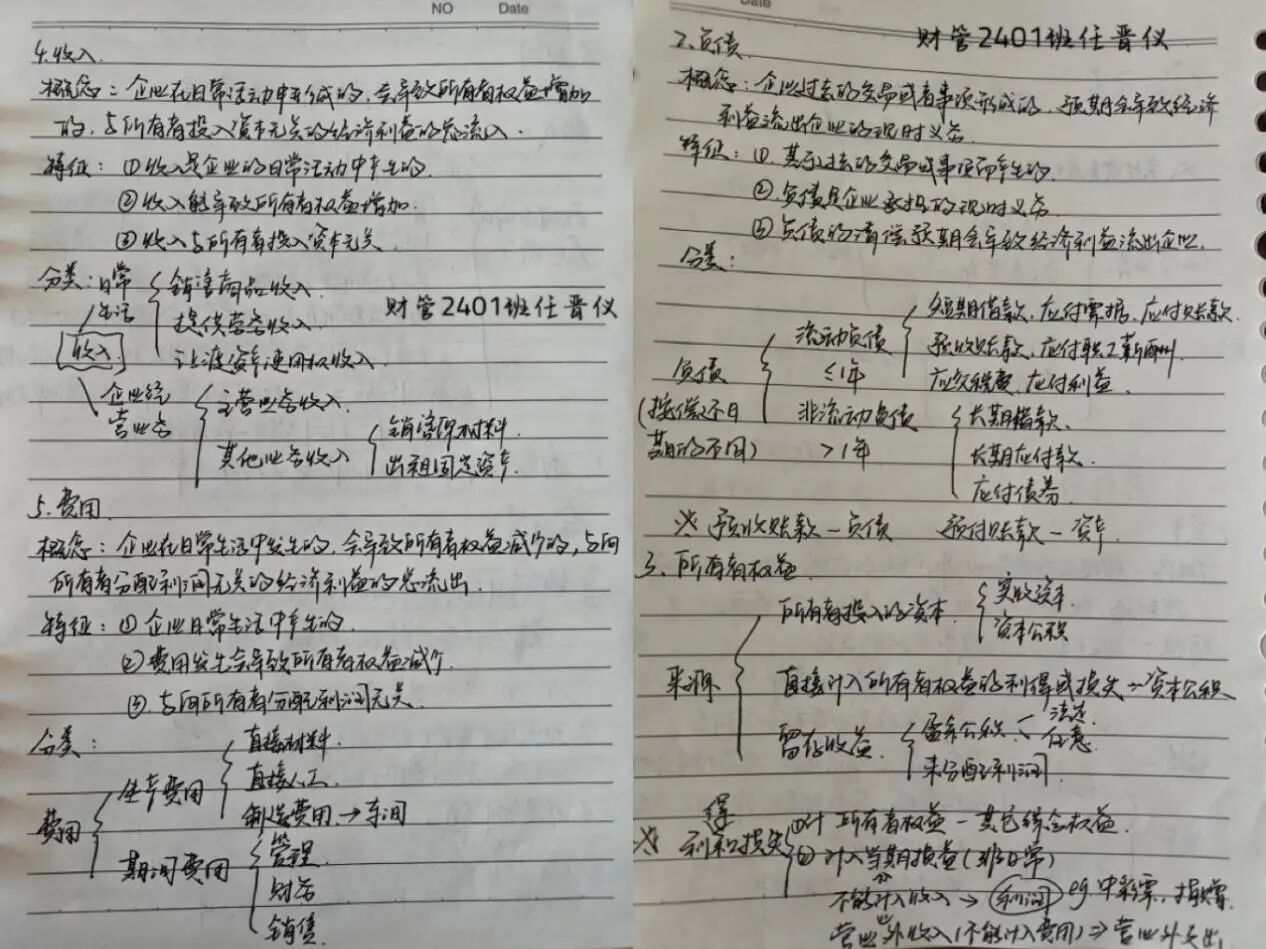 NO Date
4.收入
概念：企业在日常活动中形成的，会导致所有者权益增加
的，与所有者投入资本无关的经济利益的总流入．
特征：①收入是企业的日常活动中产生的．
②收入能导致所有者权益增加．
③收入与所有者投入资本无关．
分类：日常
生活
销售商品收入．
提供劳务收入．
让渡资产使用权收入．
财管2401班任晋仪
收入
企业经
营业务
主营业务收入．
其他业务收入
销售原材料．
出租固定资产．
5.费用．
概念：企业在日常生活中发生的，会导致所有者权益减少的，与向
所有者分配利润无关的经济利益的总流出．
特征：①企业日常生活中产生的．
②费用发生会导致所有者权益减少．
③与向所有者分配利润无关．
分类：
费用
生产费用
直接材料．
直接人工．
制造费用．→车间
期间费用
管理．
财务
销售．
Date
财管2401班任晋仪
2.负债
概念：企业过去的交易或者事项形成的，预期会导致经济
利益流出企业的现时义务．
特征：①.基于过去的交易或事项而产生的．
②.负债是企业承担的现时义务．
③负债的清偿预期会导致经济利益流出企业．
分类：
负债
(按偿还日
期的不同)
流动负债
≤1年
短期借款，应付票据，应付账款．
预收账款，应付职工薪酬．
应交税费，应付利益．
非流动负债
>1年
长期借款、
长期应付款．
应付债券．
※ 预收账款－负债 预付账款－资产．
3.所有者权益．
来源
所有者投入的资本
实收资本．
资本公积
直接计入所有者权益的利得或损失→资本公积
留存收益
盈余公积
法定．
任意．
未分配利润．
※ 利得和损失
①计 所有者权益－其它综合权益．
②计入当期损益(非日常)
不能计入收入→利润 eg.中彩票，捐赠．
营业外收入(不能计入费用)⇒营业外支出